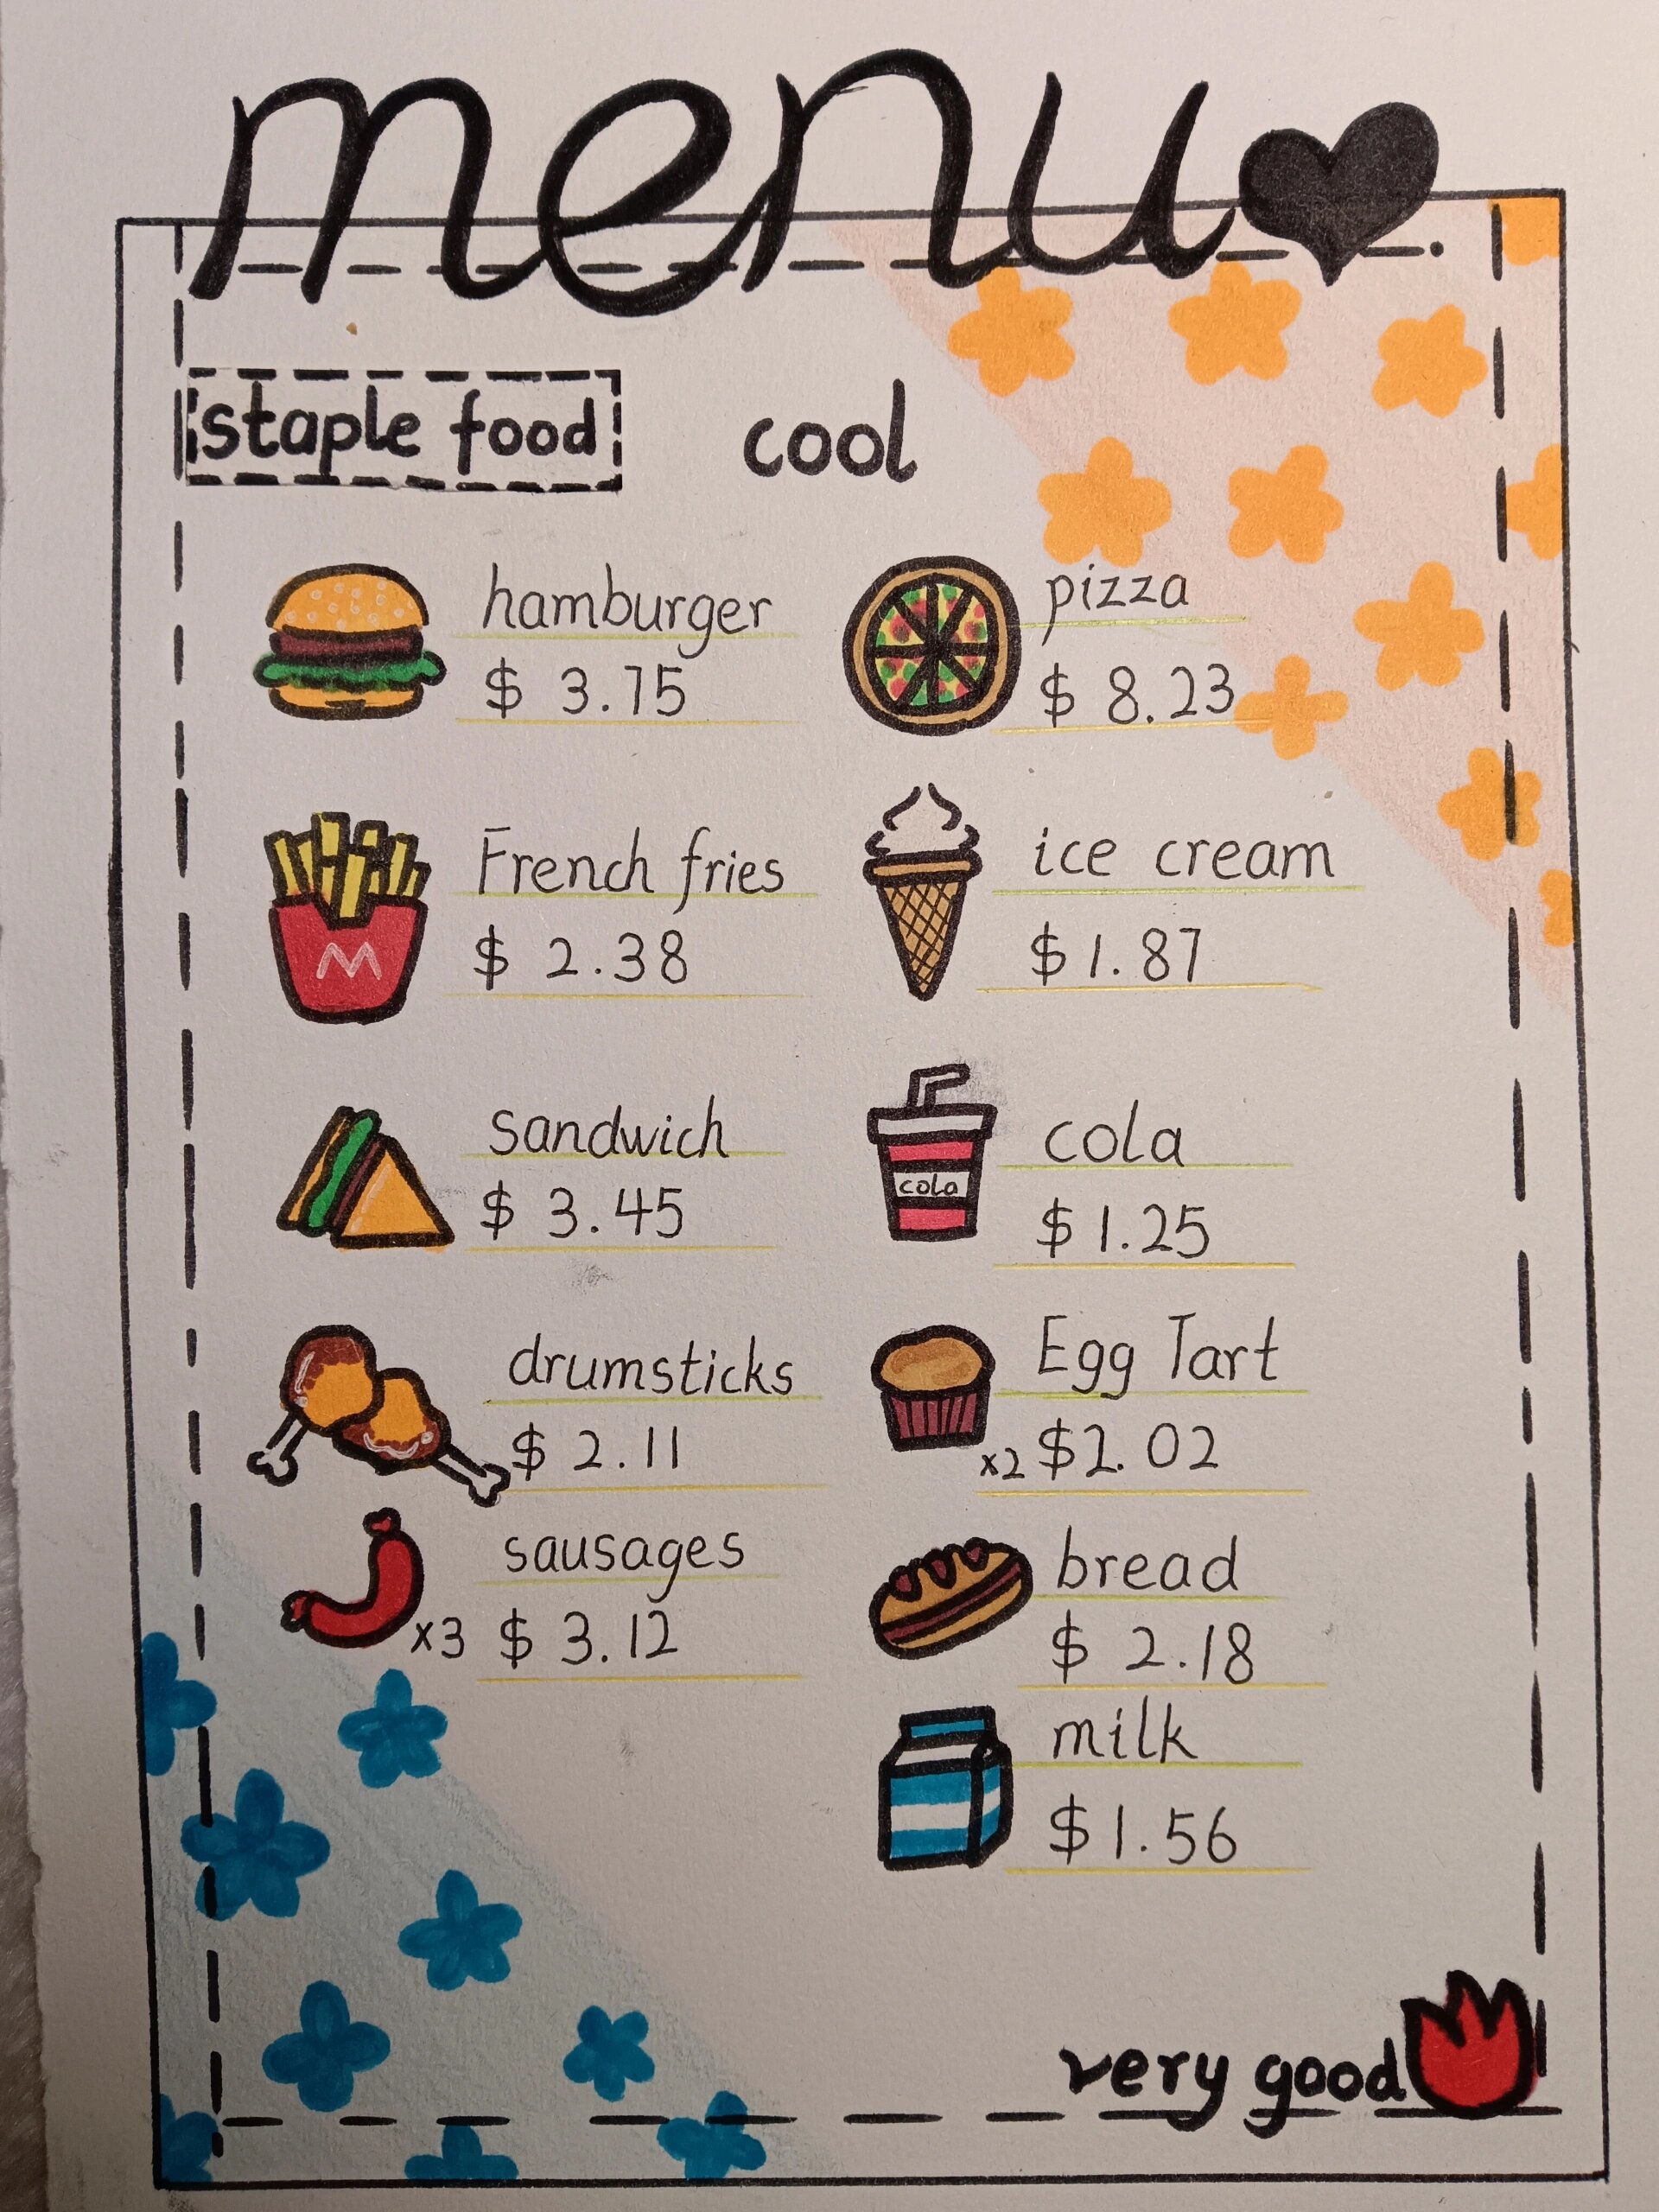 menu
staple food
cool
hamburger
$ 3.75
pizza
$ 8.23
French fries
$ 2.38
M
ice cream
$1.87
sandwich
$ 3.45
cola
$1.25
cola
drumsticks
$ 2.11
Egg Tart
x2 $2.02
sausages
x3 $ 3.12
bread
$ 2.18
milk
$1.56
very good